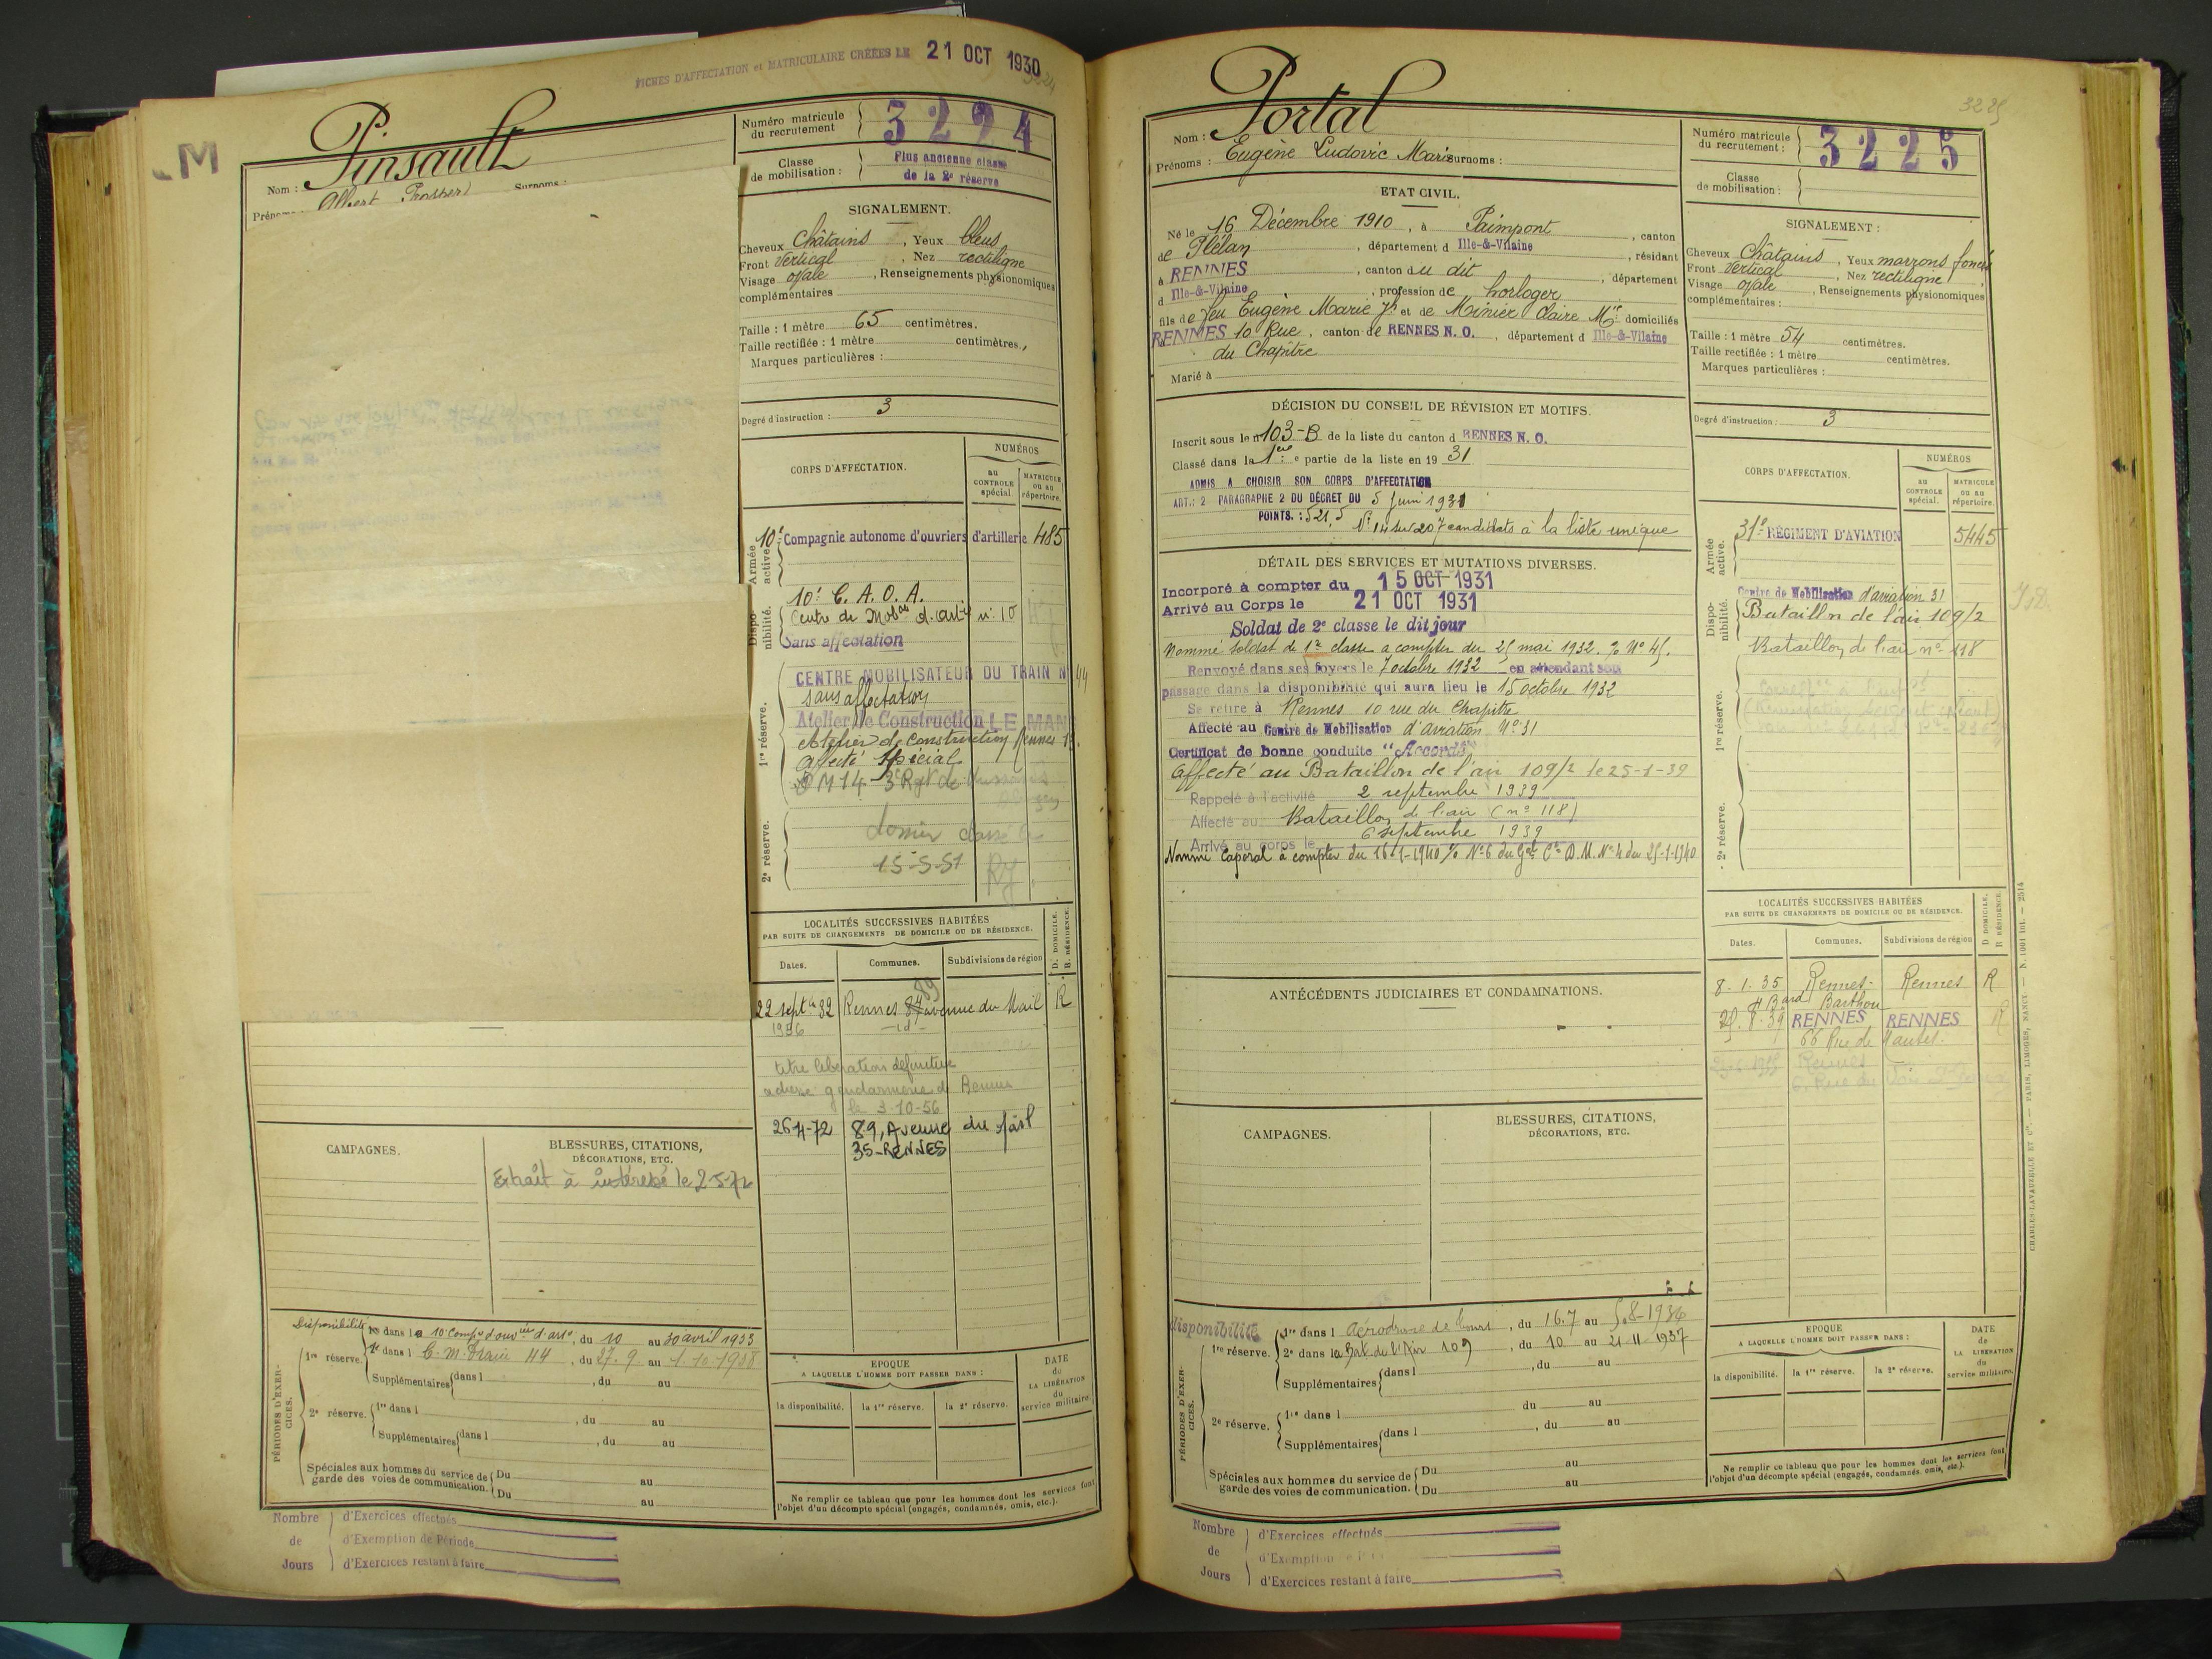 FICHES D'AFFECTATION et MATRICULAIRE CRÉÉES LE 21 OCT 1930
3224
M
Nom : Pinsault
Prénoms : Albert Prosper Surnoms :
Numéro matricule du recrutement 3224
Classe de mobilisation : Plus ancienne classe de la 2e réserve
SIGNALEMENT.
Cheveux Châtains, Yeux bleus
Front Vertical, Nez rectiligne
Visage ovale, Renseignements physionomiques
complémentaires
Taille : 1 mètre 65 centimètres.
Taille rectifiée : 1 mètre centimètres.
Marques particulières :
Degré d'instruction : 3
CORPS D'AFFECTATION.
NUMÉROS
au CONTROLE spécial.
MATRICULE ou au répertoire.
Armée active.
10e Compagnie autonome d'ouvriers d'artillerie 485
Disponibilité.
10e C. A. O. A.
Centre de Mobon d'artie n° 10
Sans affectation
1re réserve.
CENTRE MOBILISATEUR DU TRAIN N° 44
sans affectation
Atelier de Construction LE MANS
Atelier de Construction Rennes
Affecté Spécial
DM 14 3e Rgt de
2e réserve.
dossier classé
15-5-51
LOCALITÉS SUCCESSIVES HABITÉES
PAR SUITE DE CHANGEMENTS DE DOMICILE OU DE RÉSIDENCE.
D. DOMICILE.
R. RÉSIDENCE.
Dates. Communes. Subdivisions de région
22 septbre 32 Rennes 87 89 avenue du Mail R
1936 -id-
titre libération définitive
adressé gendarmerie de Rennes
le 3-10-56
26-4-72 89, Avenue du Mail
35-RENNES
CAMPAGNES.
BLESSURES, CITATIONS,
DÉCORATIONS, ETC.
Extrait à intéressé le 2-5-72
PÉRIODES D'EXERCICES.
Disponibilité
1re dans la 10 Compie d'ouvriers d'artie, du 10 au 30 avril 1933
1re réserve. 1re dans l C. M. Train 44, du 27.9. au 1.10.1938
Supplémentaires dans l , du au
2e réserve. 1re dans l , du au
Supplémentaires dans l , du au
Spéciales aux hommes du service de garde des voies de communication. Du au
Du au
EPOQUE
A LAQUELLE L'HOMME DOIT PASSER DANS :
la disponibilité. la 1re réserve. la 2e réserve.
DATE de LA LIBÉRATION du service militaire.
Ne remplir ce tableau que pour les hommes dont les services font
l'objet d'un décompte spécial (engagés, condamnés, omis, etc.).
Nombre de Jours
d'Exercices effectués
d'Exemption de Période
d'Exercices restant à faire
3225
Nom : Portal
Prénoms : Eugène Ludovic Marie Surnoms :
Numéro matricule du recrutement : 3225
Classe de mobilisation :
ETAT CIVIL.
Né le 16 Décembre 1910, à Paimpont, canton
de Plélan, département d Ille-&-Vilaine, résidant
à RENNES, canton du dit, département
d Ille-&-Vilaine, profession de horloger
fils de feu Eugène Marie Jh et de Minier Claire Mie domiciliés
RENNES 10 Rue, canton de RENNES N. O., département d Ille-&-Vilaine
du Chapitre
Marié à
SIGNALEMENT :
Cheveux Châtains, Yeux marrons foncés
Front Vertical, Nez rectiligne
Visage ovale, Renseignements physionomiques
complémentaires :
Taille : 1 mètre 54 centimètres.
Taille rectifiée : 1 mètre centimètres.
Marques particulières :
Degré d'instruction : 3
DÉCISION DU CONSEIL DE RÉVISION ET MOTIFS.
Inscrit sous le n° 103-B de la liste du canton d RENNES N. O.
Classé dans la 1ère partie de la liste en 1931
ADMIS A CHOISIR SON CORPS D'AFFECTATION
ART.: 2 PARAGRAPHE 2 DU DÉCRET DU 5 Juin 1931
POINTS. : 521,5
N° 14 sur 207 candidats à la liste unique
DÉTAIL DES SERVICES ET MUTATIONS DIVERSES.
Incorporé à compter du 15 OCT 1931
Arrivé au Corps le 21 OCT 1931
Soldat de 2e classe le dit jour
Nommé soldat de 1re classe à compter du 25 mai 1932. O/ N° 45.
Renvoyé dans ses foyers le 7 octobre 1932 en attendant son
passage dans la disponibilité qui aura lieu le 15 octobre 1932
Se retire à Rennes 10 rue du Chapitre
Affecté au Centre de Mobilisation d'aviation N° 31
Certificat de bonne conduite "Accordé"
Affecté au Bataillon de l'air 109/2 le 25-1-39
Rappelé à l'activité 2 septembre 1939
Affecté au Bataillon de l'air (n° 118)
Arrivé au corps le 6 septembre 1939
Nommé Caporal à compter du 16-1-1940 O/ N° 6 du Gal Ct D.M. N° 4 du 25-1-1940
CORPS D'AFFECTATION.
NUMÉROS
au CONTROLE spécial.
MATRICULE ou au répertoire.
Armée active.
31e RÉGIMENT D'AVIATION 5445
Disponibilité.
Centre de Mobilisation d'aviation 31
Bataillon de l'air 109/2
Bataillon de l'air n° 118
1re réserve.
2e réserve.
ANTÉCÉDENTS JUDICIAIRES ET CONDAMNATIONS.
LOCALITÉS SUCCESSIVES HABITÉES
PAR SUITE DE CHANGEMENTS DE DOMICILE OU DE RÉSIDENCE.
D DOMICILE.
R RÉSIDENCE.
Dates. Communes. Subdivisions de région
8-1-35 Rennes- Rennes R
4 Bard Barthou
25.8.39 RENNES RENNES R
66 Rue de Nantes.
Rennes
6, Rue du
CAMPAGNES.
BLESSURES, CITATIONS,
DÉCORATIONS, ETC.
PÉRIODES D'EXERCICES.
disponibilité
1re réserve. 1re dans l Aérodrome de Tours, du 16.7 au 5.8-1936
2e dans la Bat. de l'Air 109, du 10 au 21-11-1937
Supplémentaires dans l , du au
2e réserve. 1re dans l du au
Supplémentaires dans l , du au
Spéciales aux hommes du service de garde des voies de communication. Du au
Du au
EPOQUE
A LAQUELLE L'HOMME DOIT PASSER DANS :
la disponibilité. la 1re réserve. la 2e réserve.
DATE de LA LIBERATION du service militaire.
Ne remplir ce tableau que pour les hommes dont les services font
l'objet d'un décompte spécial (engagés, condamnés, omis, etc.).
Nombre de Jours
d'Exercices effectués
d'Exemption
d'Exercices restant à faire
CHARLES-LAVAUZELLE ET Cie. — PARIS, LIMOGES, NANCY. — N. 1001 int. — 2514